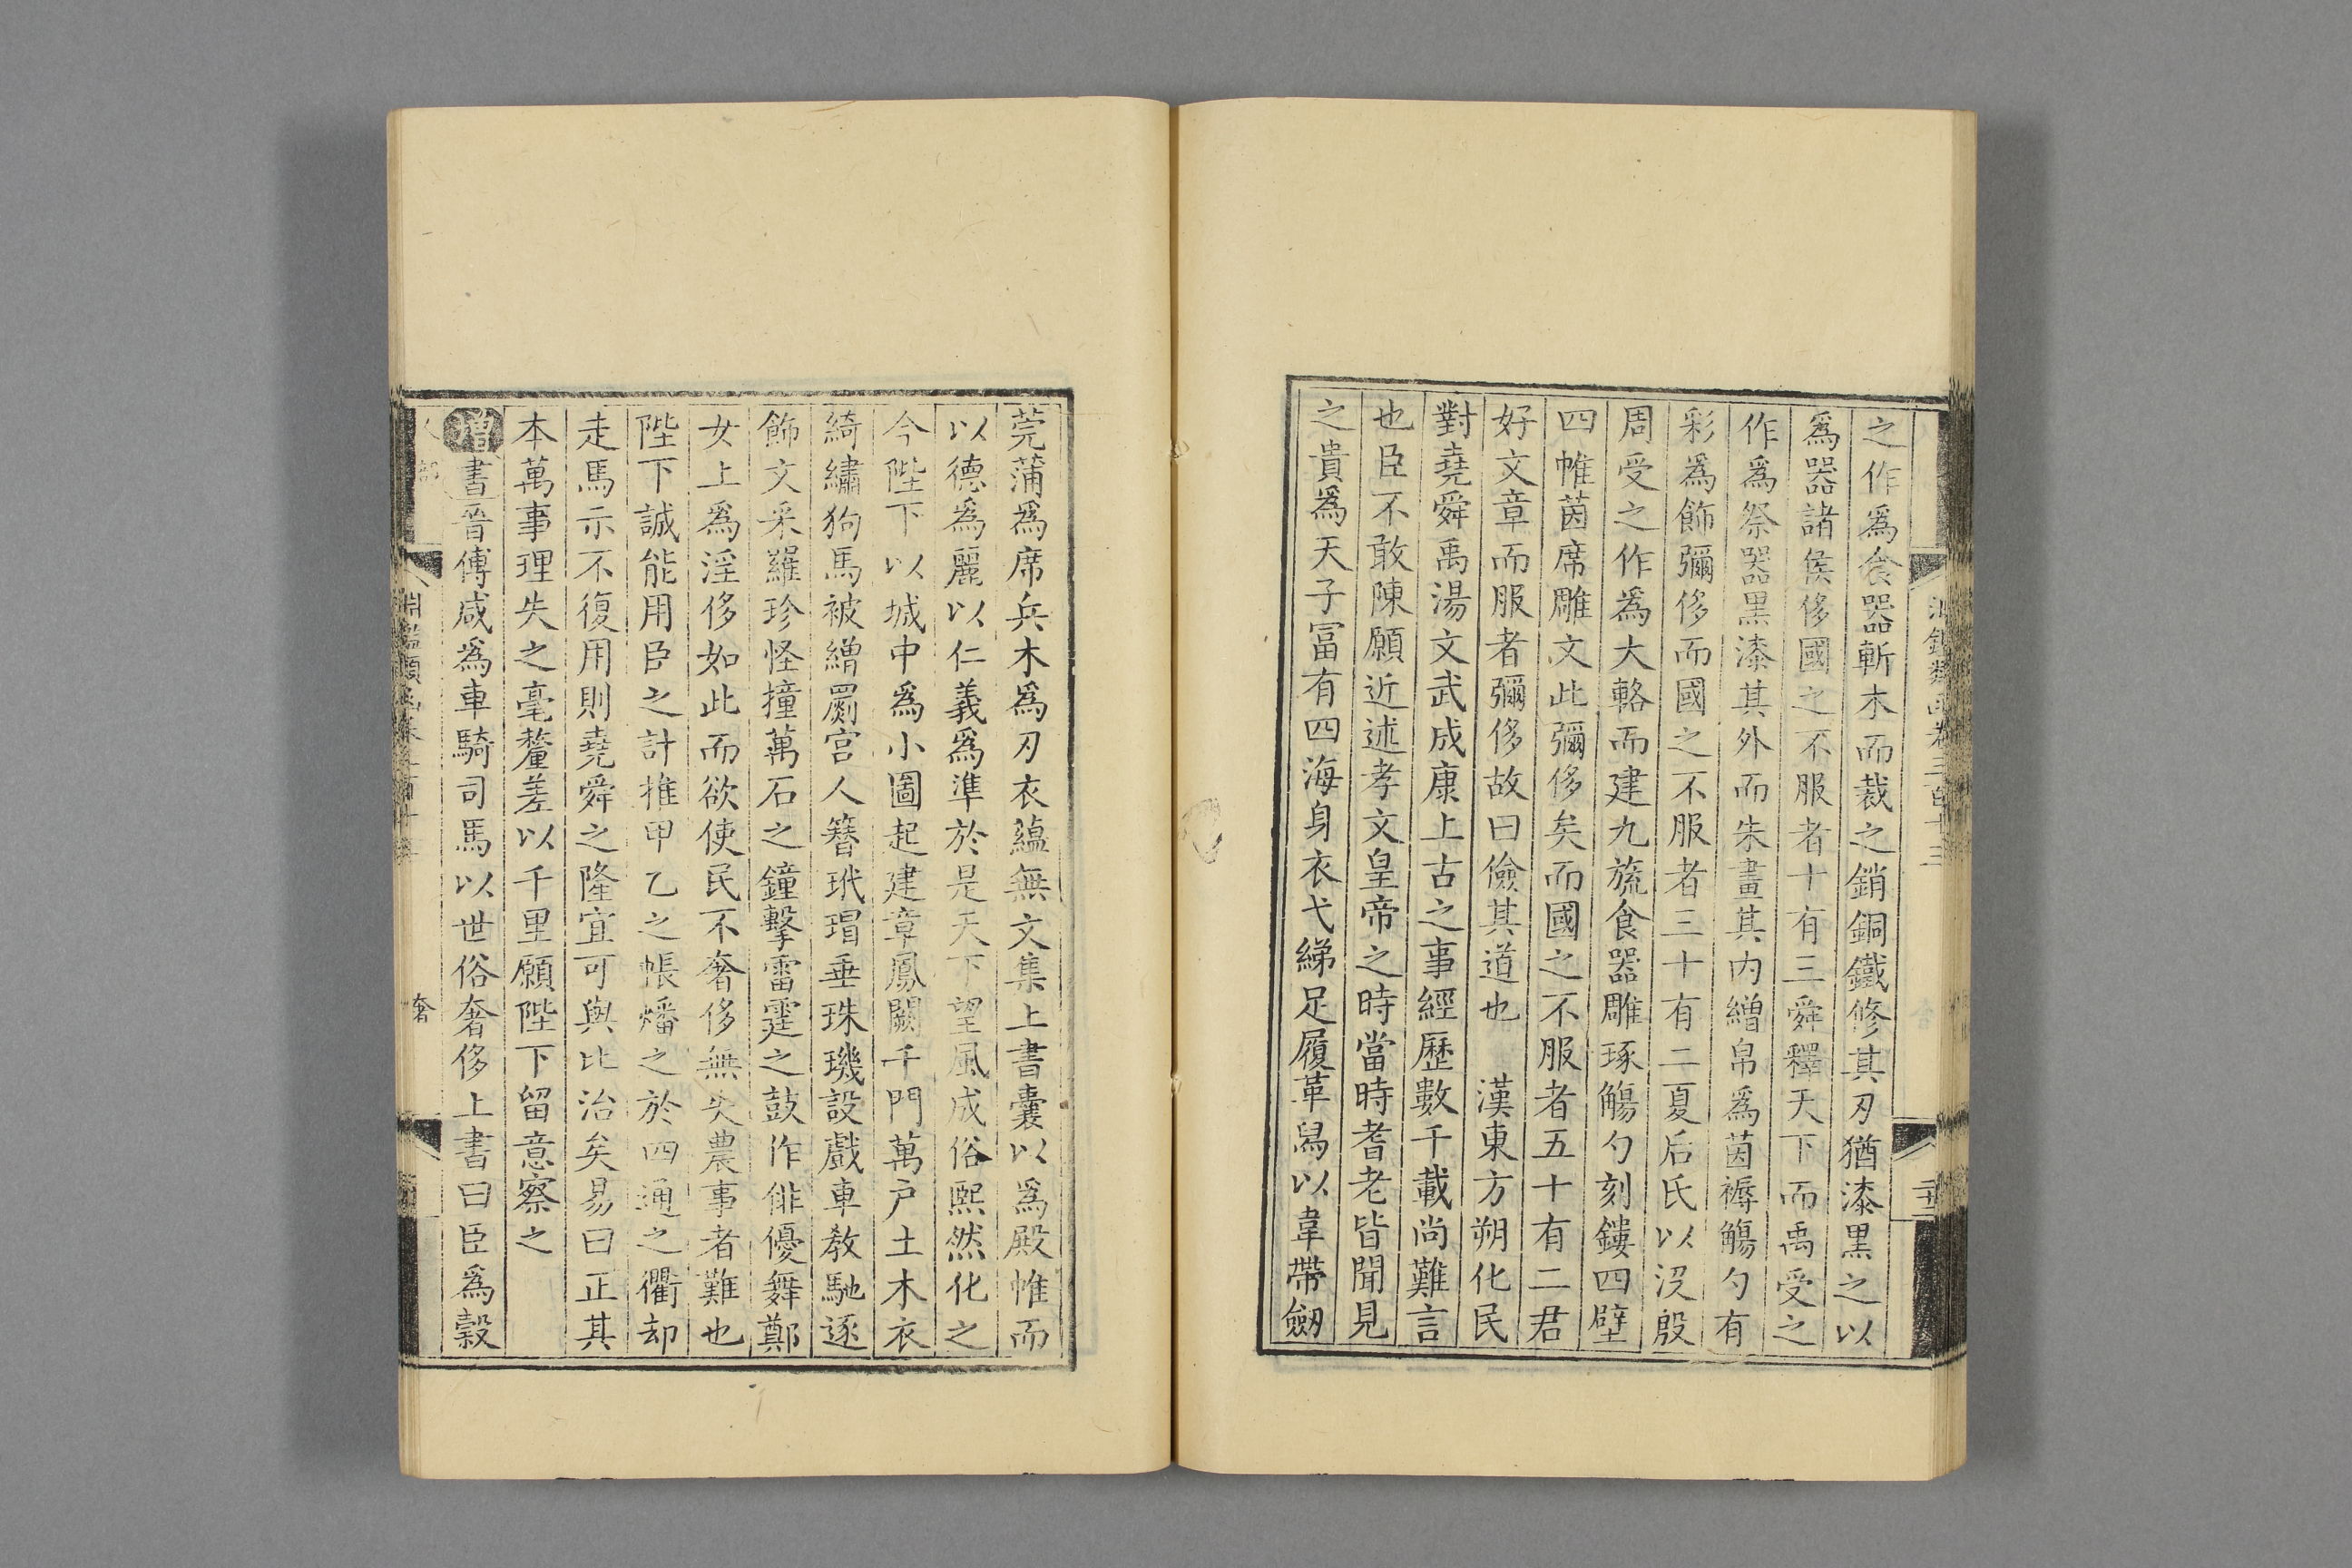 淵鑑類函卷三百十三
之作爲食器斬木而裁之銷銅鐵修其刃猶漆黑之以
爲器諸侯侈國之不服者十有三舜釋天下而禹受之
作爲祭器黑漆其外而朱畫其内繒帛爲茵褥觴勺有
彩爲飾彌侈而國之不服者三十有二夏后氏以没殷
周受之作爲大輅而建九旒食器雕琢觴勺刻鏤四壁
四帷茵席雕文此彌侈矣而國之不服者五十有二君
好文章而服者彌侈故曰儉其道也 漢東方朔化民
對堯舜禹湯文武成康上古之事經歷數千載尚難言
也臣不敢陳願近述孝文皇帝之時當時耆老皆聞見
之貴爲天子冨有四海身衣弋綈足履革舄以韋帶劒
莞蒲爲席兵木爲刃衣蘊無文集上書囊以爲殿帷而
以德爲麗以仁義爲準於是天下望風成俗熙然化之
今陛下以城中爲小圖起建章鳳闕千門萬户土木衣
綺繡狗馬被繒罽宫人簪玳瑁垂珠璣設戲車教馳逐
飾文采羅珍怪撞萬石之鐘擊雷霆之鼓作俳優舞鄭
女上爲淫侈如此而欲使民不奢侈無失農事者難也
陛下誠能用臣之計推甲乙之帳燔之於四通之衢却
走馬示不復用則堯舜之隆宜可與比治矣易曰正其
本萬事理失之毫釐差以千里願陛下留意察之
增書晉傅咸爲車騎司馬以世俗奢侈上書曰臣爲穀
人部
淵鑑類函卷三百十三
奢